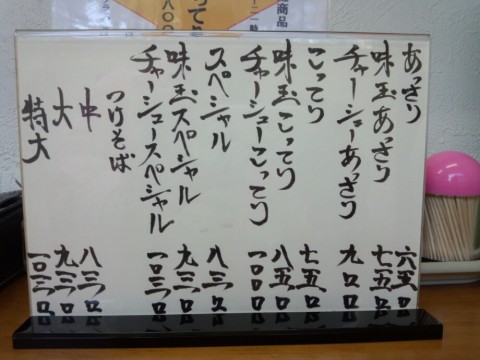 あっさり 六五〇
味玉あっさり 七五〇
チャーシューあっさり 九〇〇
こってり 七五〇
味玉こってり 八五〇
チャーシューこってり 一〇〇〇
スペシャル 八三〇
味玉スペシャル 九三〇
チャーシュースペシャル 一〇三〇
つけそば
中 八三〇
大 九三〇
特大 一〇三〇